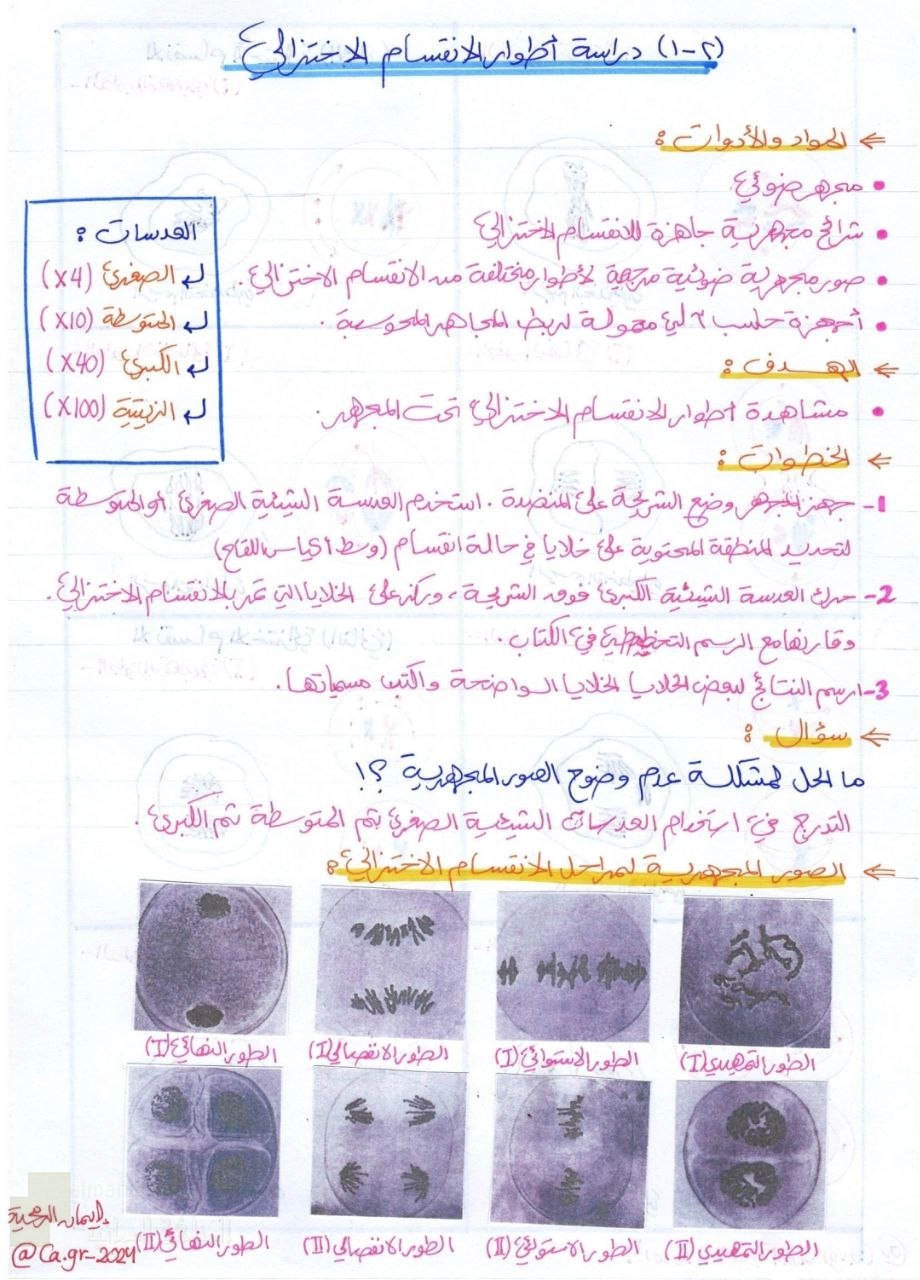 (١-٢) دراسة أطوار الانقسام الاختزالي
⇐ المواد والأدوات :
• مجهر ضوئي
• شرائح مجهرية جاهزة للانقسام الاختزالي
• صور مجهرية ضوئية مرجعية لأطوار مختلفة من الانقسام الاختزالي .
• أجهزة حاسب آلي محمولة لربط المجاهر المحوسبة .
العدسات :
↲ الصغرى (X4)
↲ المتوسطة (X10)
↲ الكبرى (X40)
↲ الزيتية (X100)
⇐ الهدف :
• مشاهدة أطوار الانقسام الاختزالي تحت المجهر .
⇐ الخطوات :
1- جهز المجهر وضع الشريحة على المنضدة . استخدم العدسة الشيئية الصغرى أو المتوسطة
لتحديد المنطقة المحتوية على خلايا في حالة انقسام (وسط أكياس اللقاح)
2- حرك العدسة الشيئية الكبرى فوق الشريحة ، وركز على الخلايا التي تمر بالانقسام الاختزالي .
وقارنها مع الرسم التخطيطي في الكتاب .
3- ارسم النتائج لبعض الخلايا الخلايا الواضحة واكتب مسمياتها .
⇐ سؤال :
ما الحل لمشكلة عدم وضوح الصور المجهرية ؟!
التدرج في استخدام العدسات الشيئية الصغرى ثم المتوسطة ثم الكبرى .
⇐ الصور المجهرية لمراحل الانقسام الاختزالي :
الطور التمهيدي (I)
الطور الاستوائي (I)
الطور الانفصالي (I)
الطور النهائي (I)
الطور التمهيدي (II)
الطور الاستوائي (II)
الطور الانفصالي (II)
الطور النهائي (II)
@Ca.gr_2024